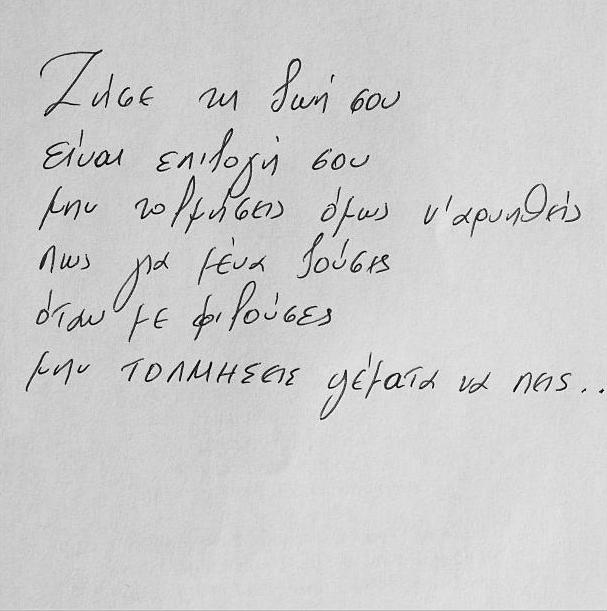 Ζήσε τη ζωή σου
είναι επιλογή σου
μην τολμήσεις όμως ν'αρνηθείς
πως για μένα ζούσες
όταν με φιλούσες
μην ΤΟΛΜΗΣΕΙΣ ψέματα να πεις..